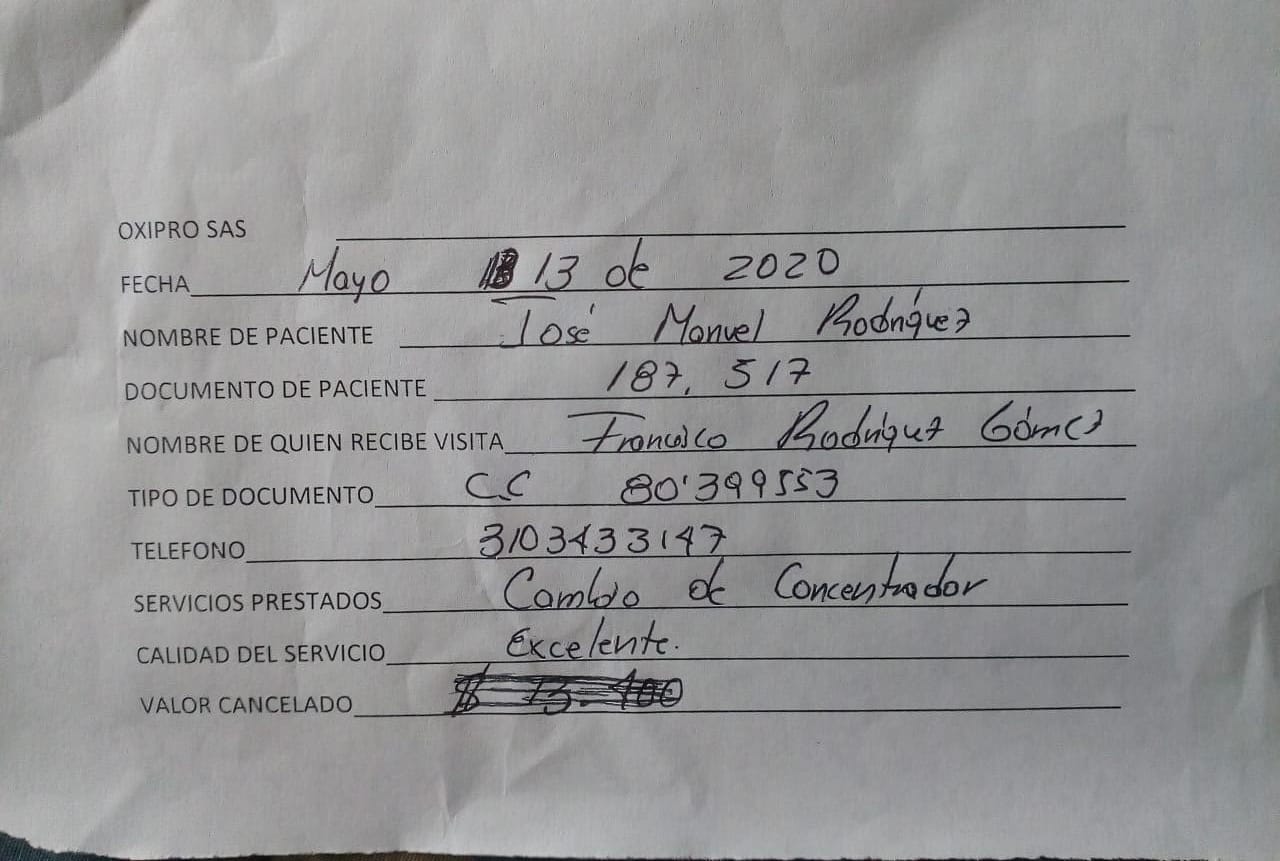 OXIPRO SAS
FECHA Mayo 13 de 2020
NOMBRE DE PACIENTE José Manuel Rodríguez
DOCUMENTO DE PACIENTE 187.517
NOMBRE DE QUIEN RECIBE VISITA Francisco Rodríguez Gómez
TIPO DE DOCUMENTO C.C 80'399553
TELEFONO 3103433147
SERVICIOS PRESTADOS Cambio de Concentrador
CALIDAD DEL SERVICIO Excelente.
VALOR CANCELADO